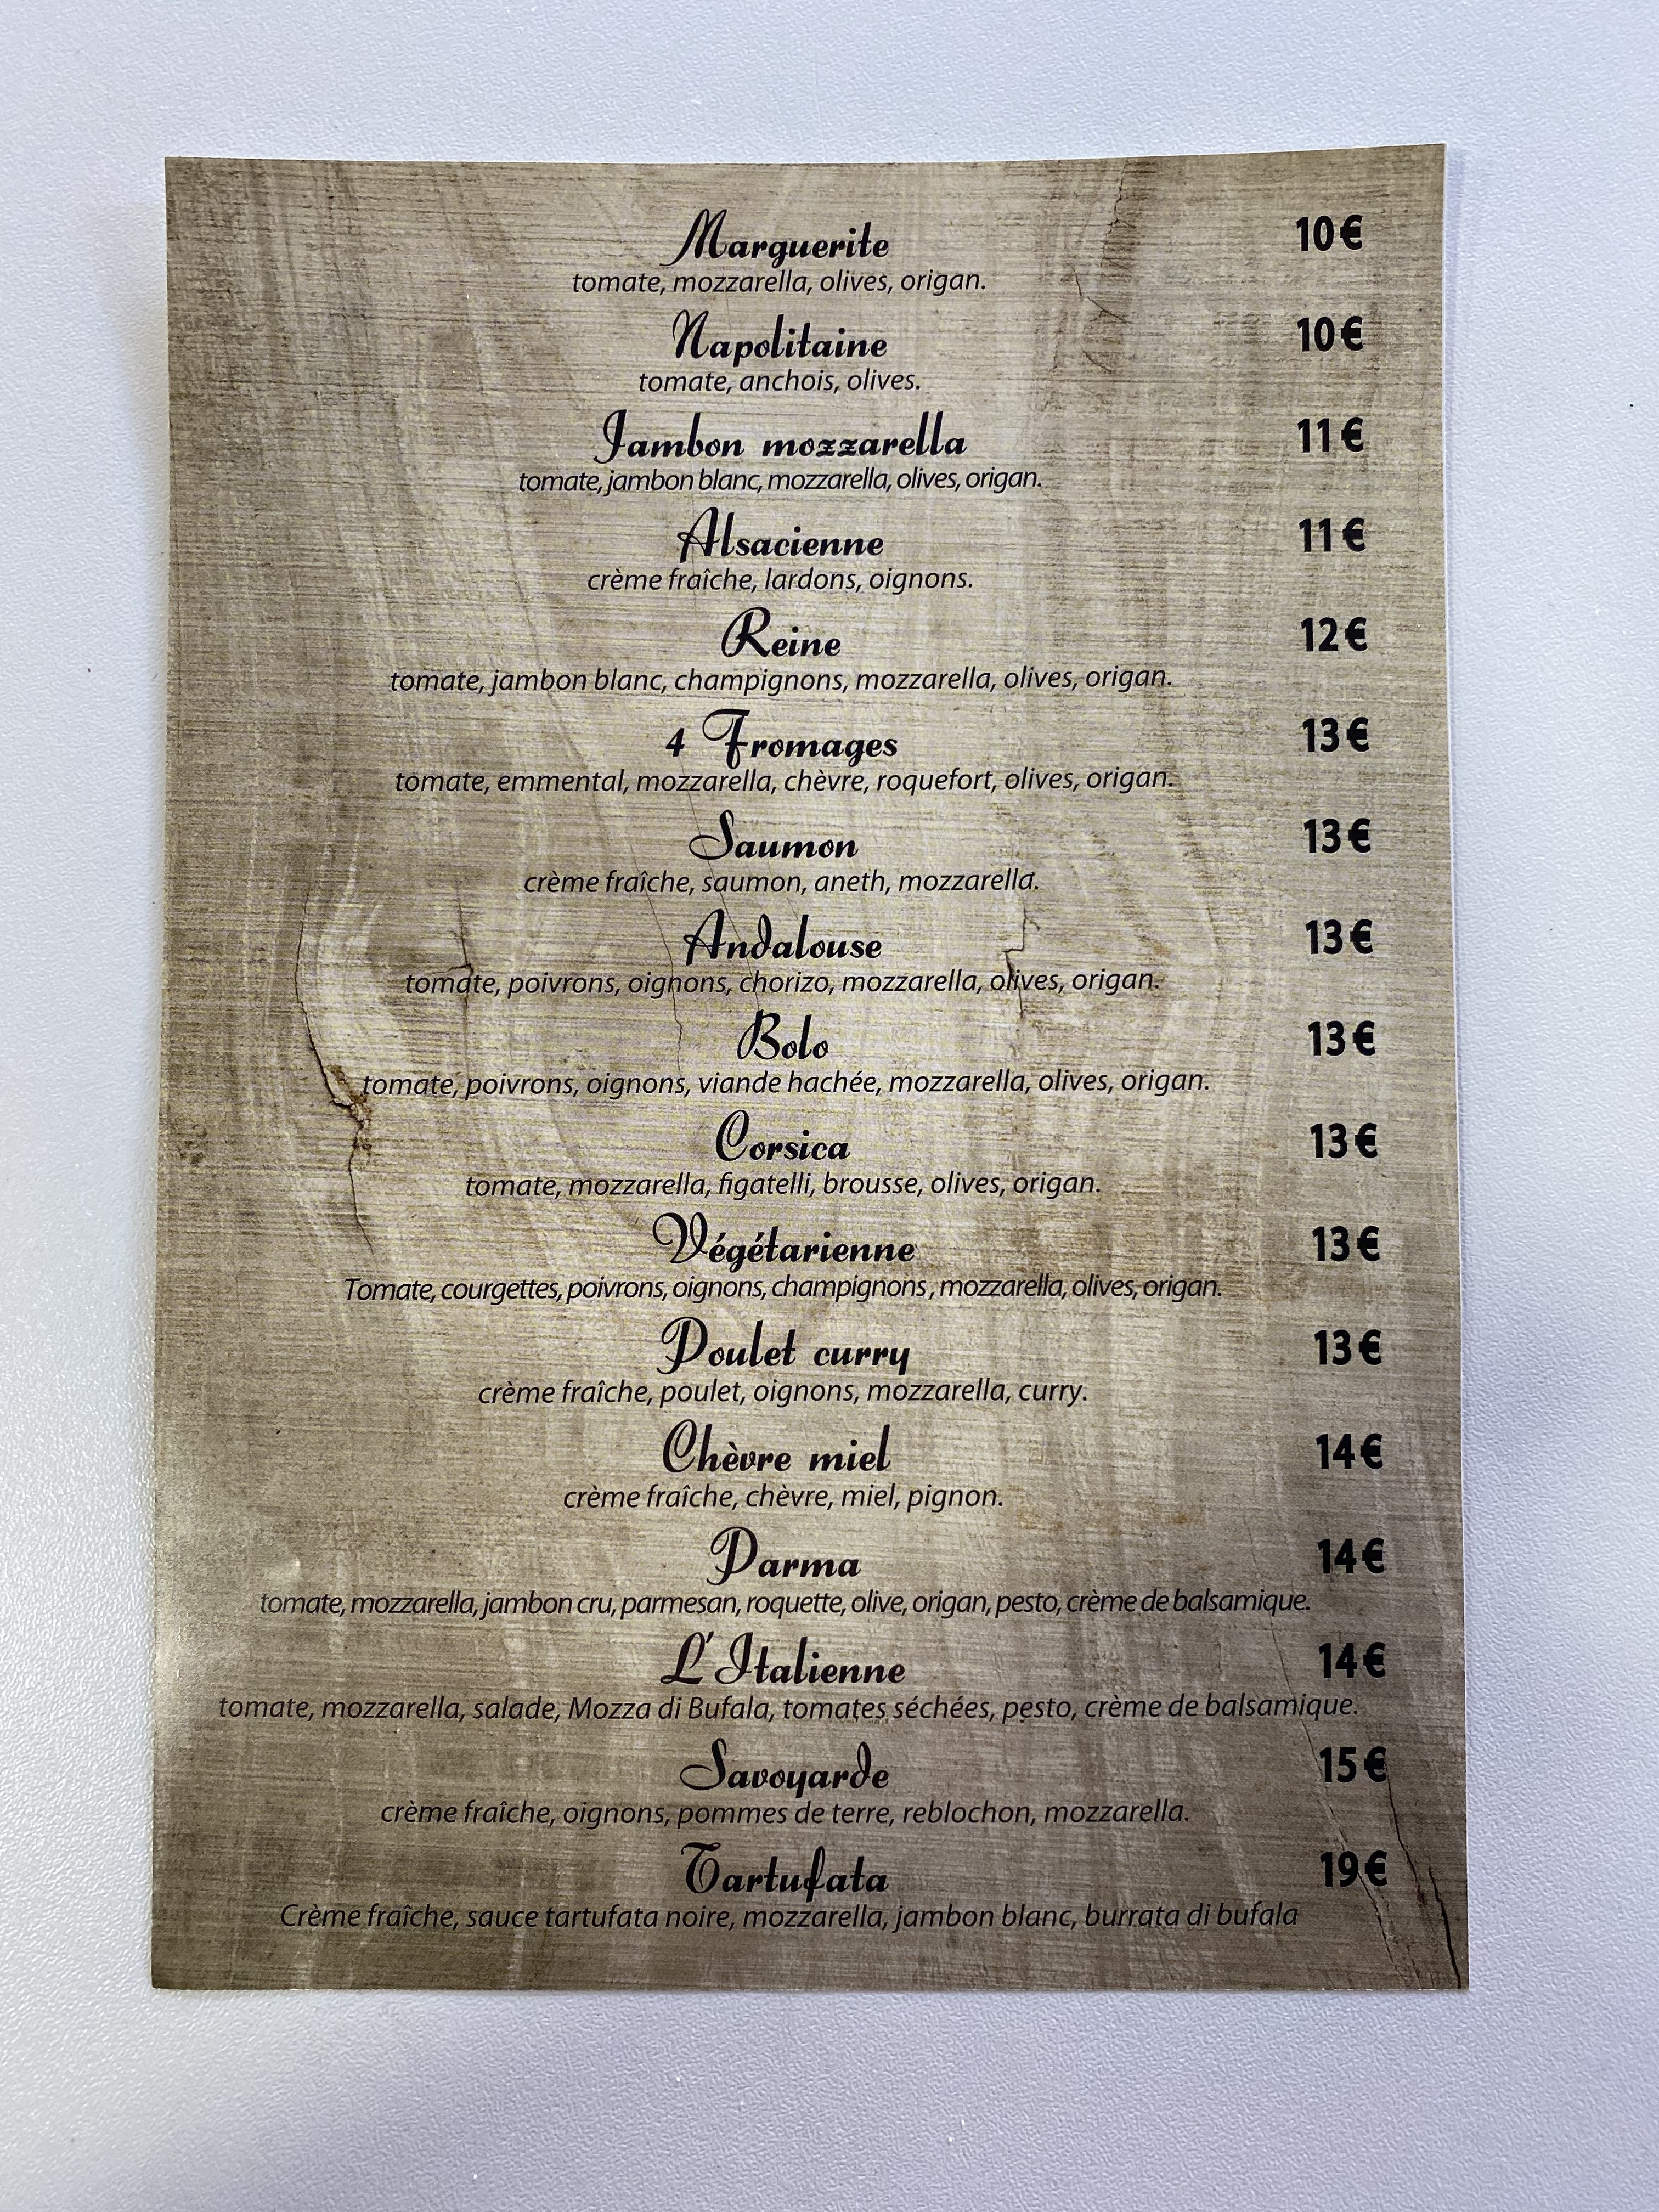 Marguerite 10€
tomate, mozzarella, olives, origan.
Napolitaine 10€
tomate, anchois, olives.
Jambon mozzarella 11€
tomate, jambon blanc, mozzarella, olives, origan.
Alsacienne 11€
crème fraîche, lardons, oignons.
Reine 12€
tomate, jambon blanc, champignons, mozzarella, olives, origan.
4 Fromages 13€
tomate, emmental, mozzarella, chèvre, roquefort, olives, origan.
Saumon 13€
crème fraîche, saumon, aneth, mozzarella.
Andalouse 13€
tomate, poivrons, oignons, chorizo, mozzarella, olives, origan.
Bolo 13€
tomate, poivrons, oignons, viande hachée, mozzarella, olives, origan.
Corsica 13€
tomate, mozzarella, figatelli, brousse, olives, origan.
Végétarienne 13€
Tomate, courgettes, poivrons, oignons, champignons, mozzarella, olives, origan.
Poulet curry 13€
crème fraîche, poulet, oignons, mozzarella, curry.
Chèvre miel 14€
crème fraîche, chèvre, miel, pignon.
Parma 14€
tomate, mozzarella, jambon cru, parmesan, roquette, olive, origan, pesto, crème de balsamique.
L'Italienne 14€
tomate, mozzarella, salade, Mozza di Bufala, tomates séchées, pesto, crème de balsamique.
Savoyarde 15€
crème fraîche, oignons, pommes de terre, reblochon, mozzarella.
Tartufata 19€
Crème fraîche, sauce tartufata noire, mozzarella, jambon blanc, burrata di bufala